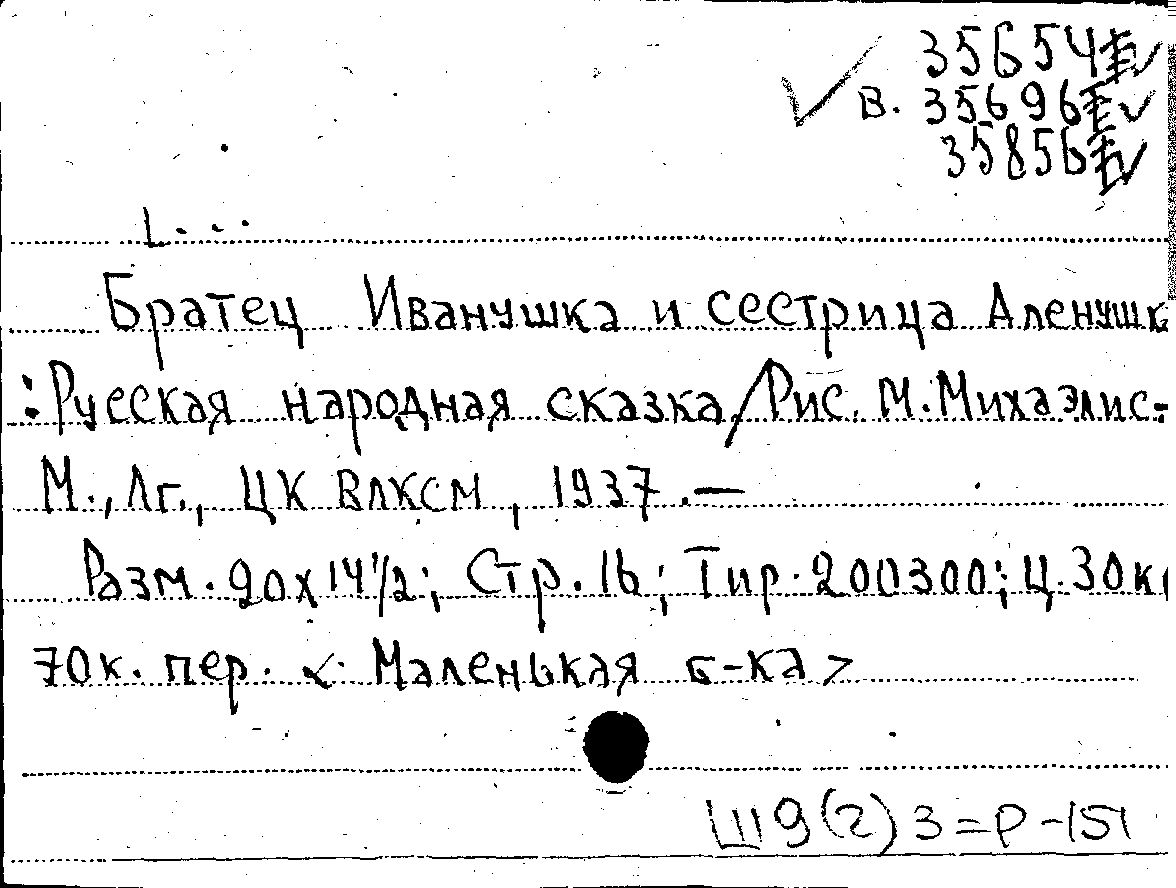 35654
В. 35696
35856
Братец Иванушка и сестрица Аленушк
: Русская народная сказка / Рис. М. Михаэлис.-
М., Лг., ЦК ВЛКСМ, 1937. —
Разм. 20х14 1/2; Стр. 16; Тир. 200300; Ц. 30к
70к. пер. < Маленькая б-ка >
Ш9(2)3=Р-151